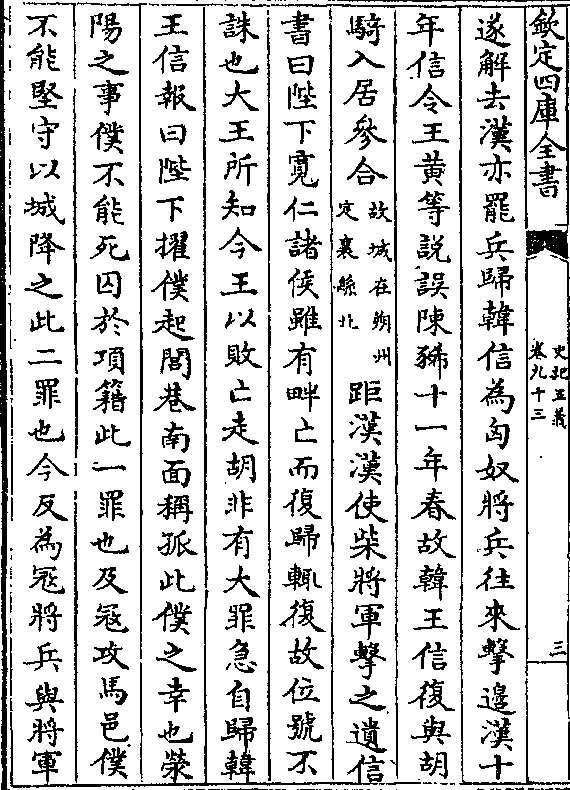 欽定四庫全書
史記正義
卷九十三
三
遂解去漢亦罷兵歸韓信為匈奴將兵往來擊邊漢十
年信令王黃等說誤陳豨十一年春故韓王信復與胡
騎入居參合故城在朔州定襄縣北距漢漢使柴將軍擊之遺信
書曰陛下寬仁諸侯雖有畔亡而復歸輒復故位號不
誅也大王所知今王以敗亡走胡非有大罪急自歸韓
王信報曰陛下擢僕起閭巷南面稱孤此僕之幸也滎
陽之事僕不能死囚於項籍此一罪也及冦攻馬邑僕
不能堅守以城降之此二罪也今反為冦將兵與將軍